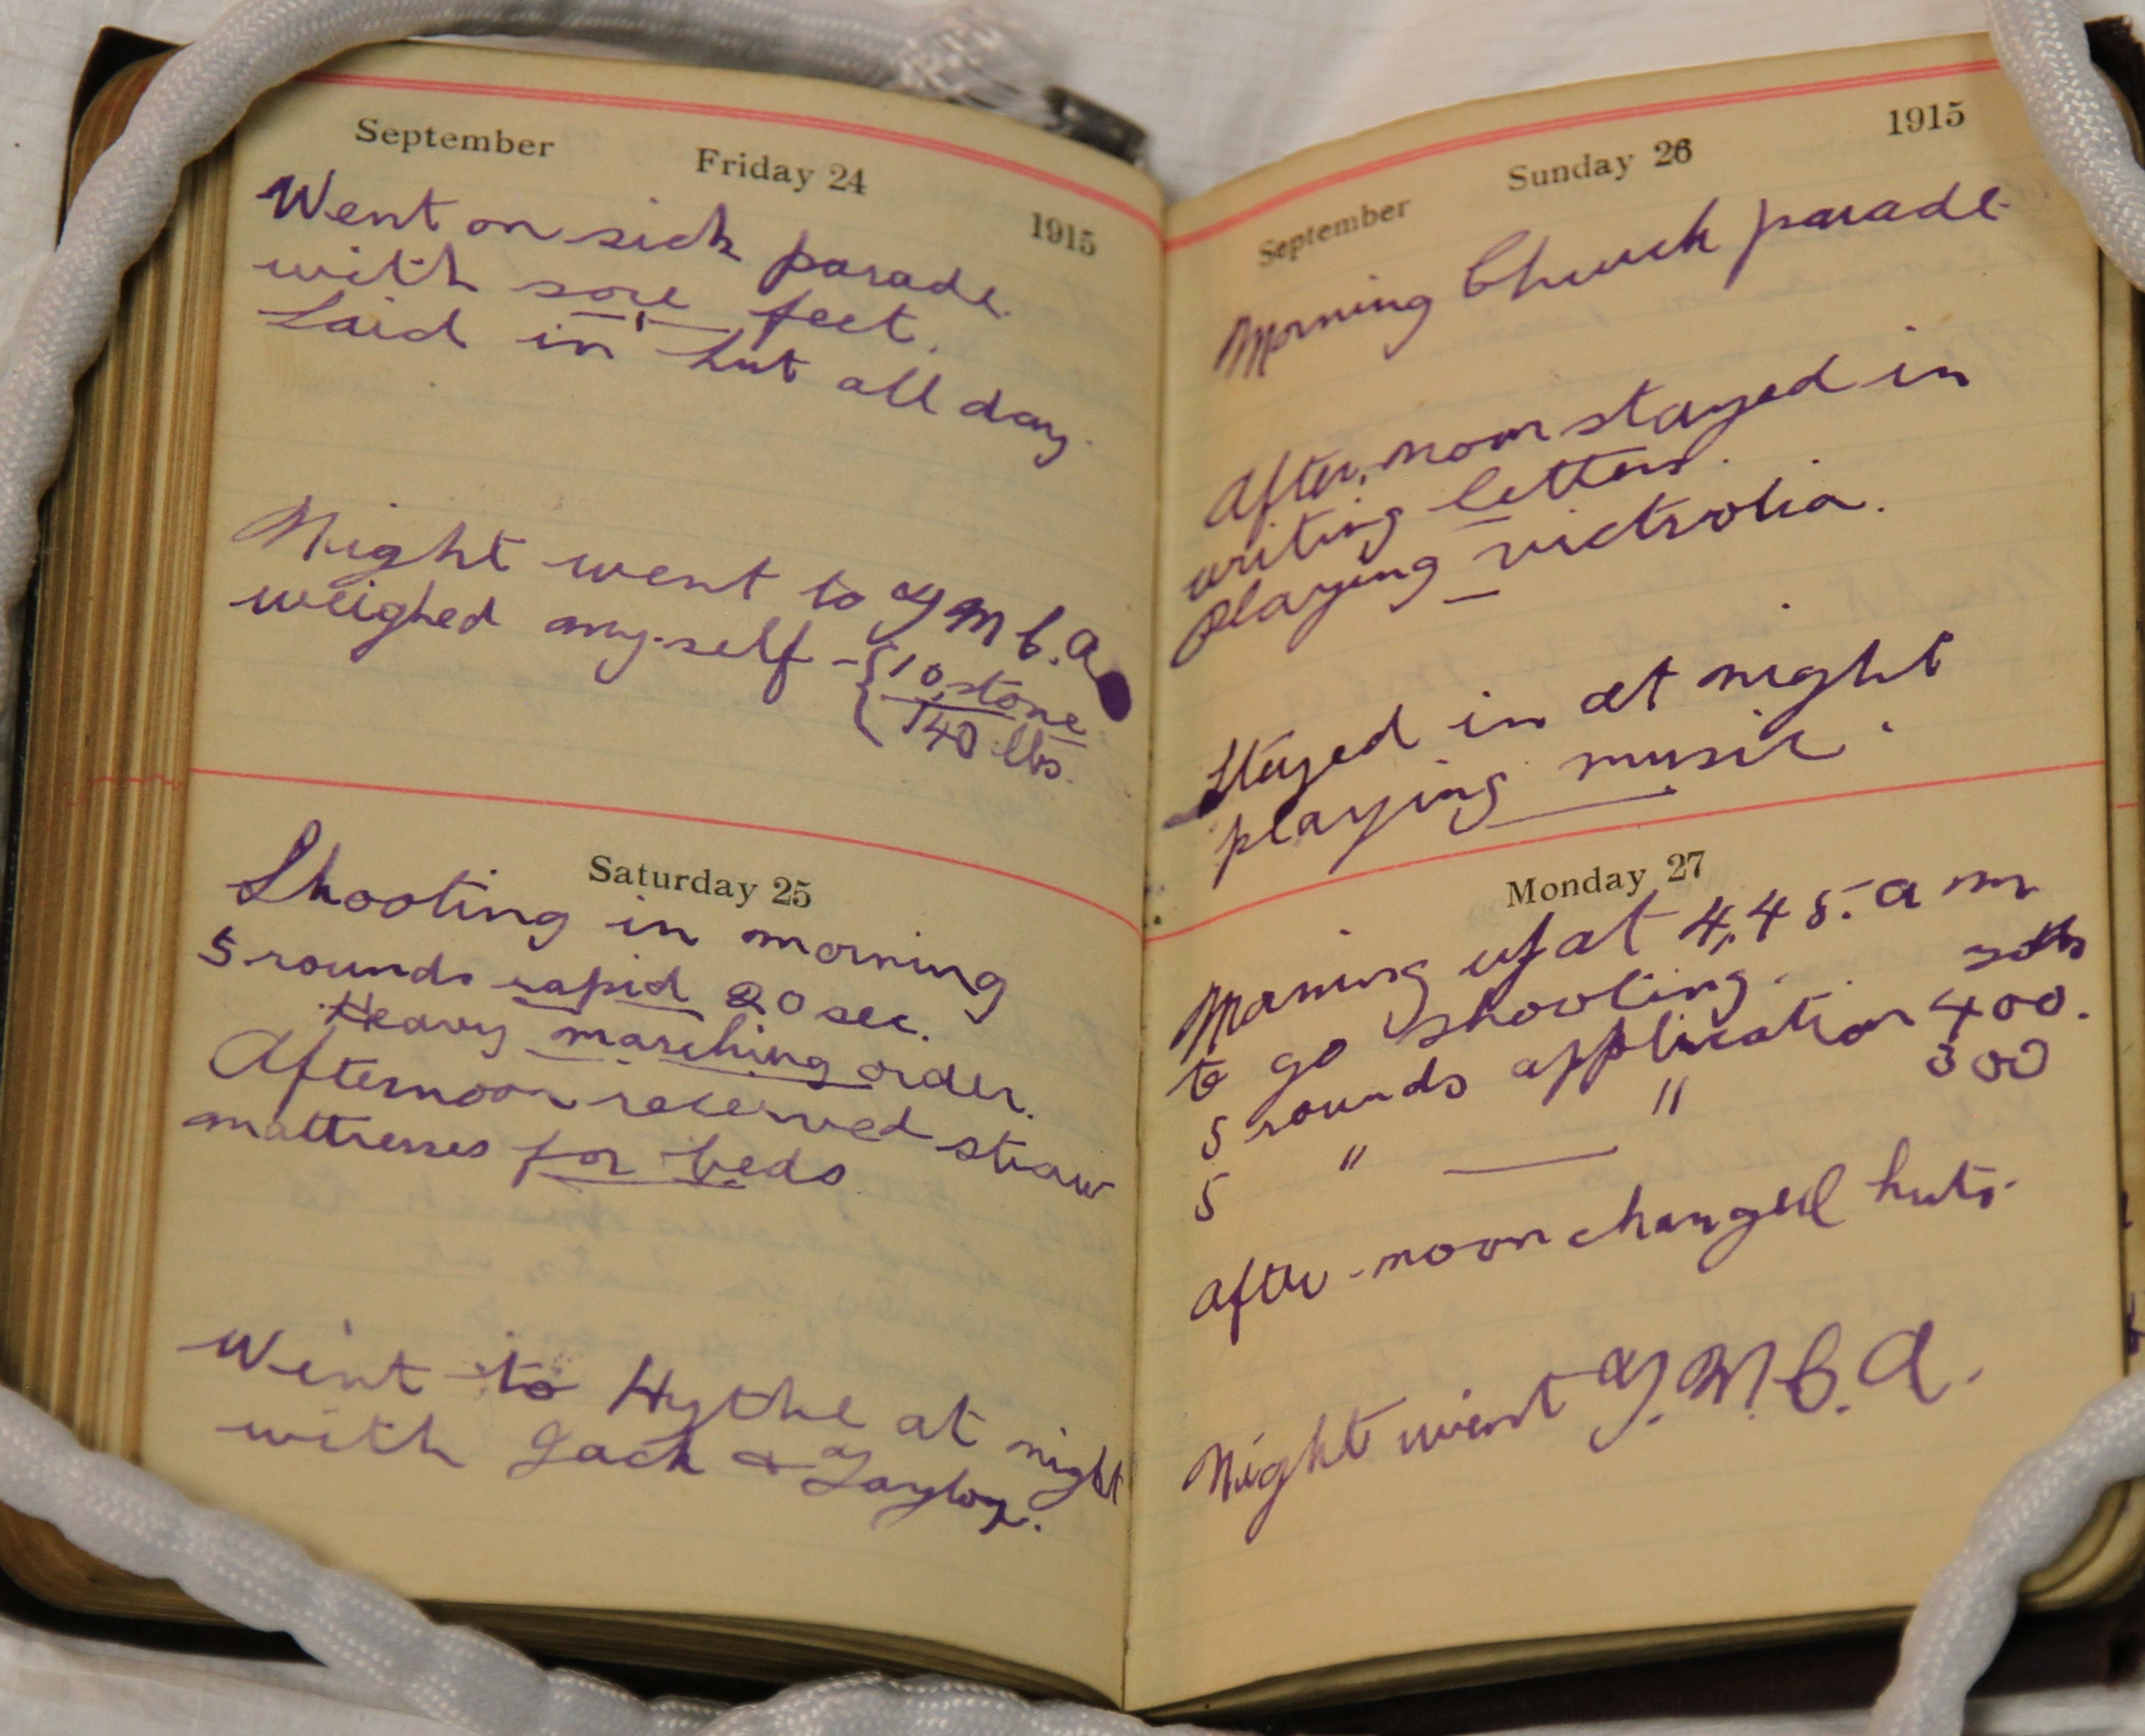 September Friday 24 1915
Went on sick parade.
with sore feet.
Laid in hut all day.
Night went to Y M C. A
weighed my-self - { 10 stone
140 lbs.
Saturday 25
Shooting in morning
5 rounds rapid 20 sec.
Heavy marching order.
Afternoon received straw
mattresses for beds
Went to Hythe at night
with Jack & Taylor.
September Sunday 26 1915
Morning Church parade.
After-noon stayed in
writing letters.
playing victrolia.
Stayed in at night
playing music.
Monday 27
Morning up at 4,45. a m
to go shooting.
5 rounds application 400.
5 " " 300
after-noon changed huts.
Night went Y. M. C. A.